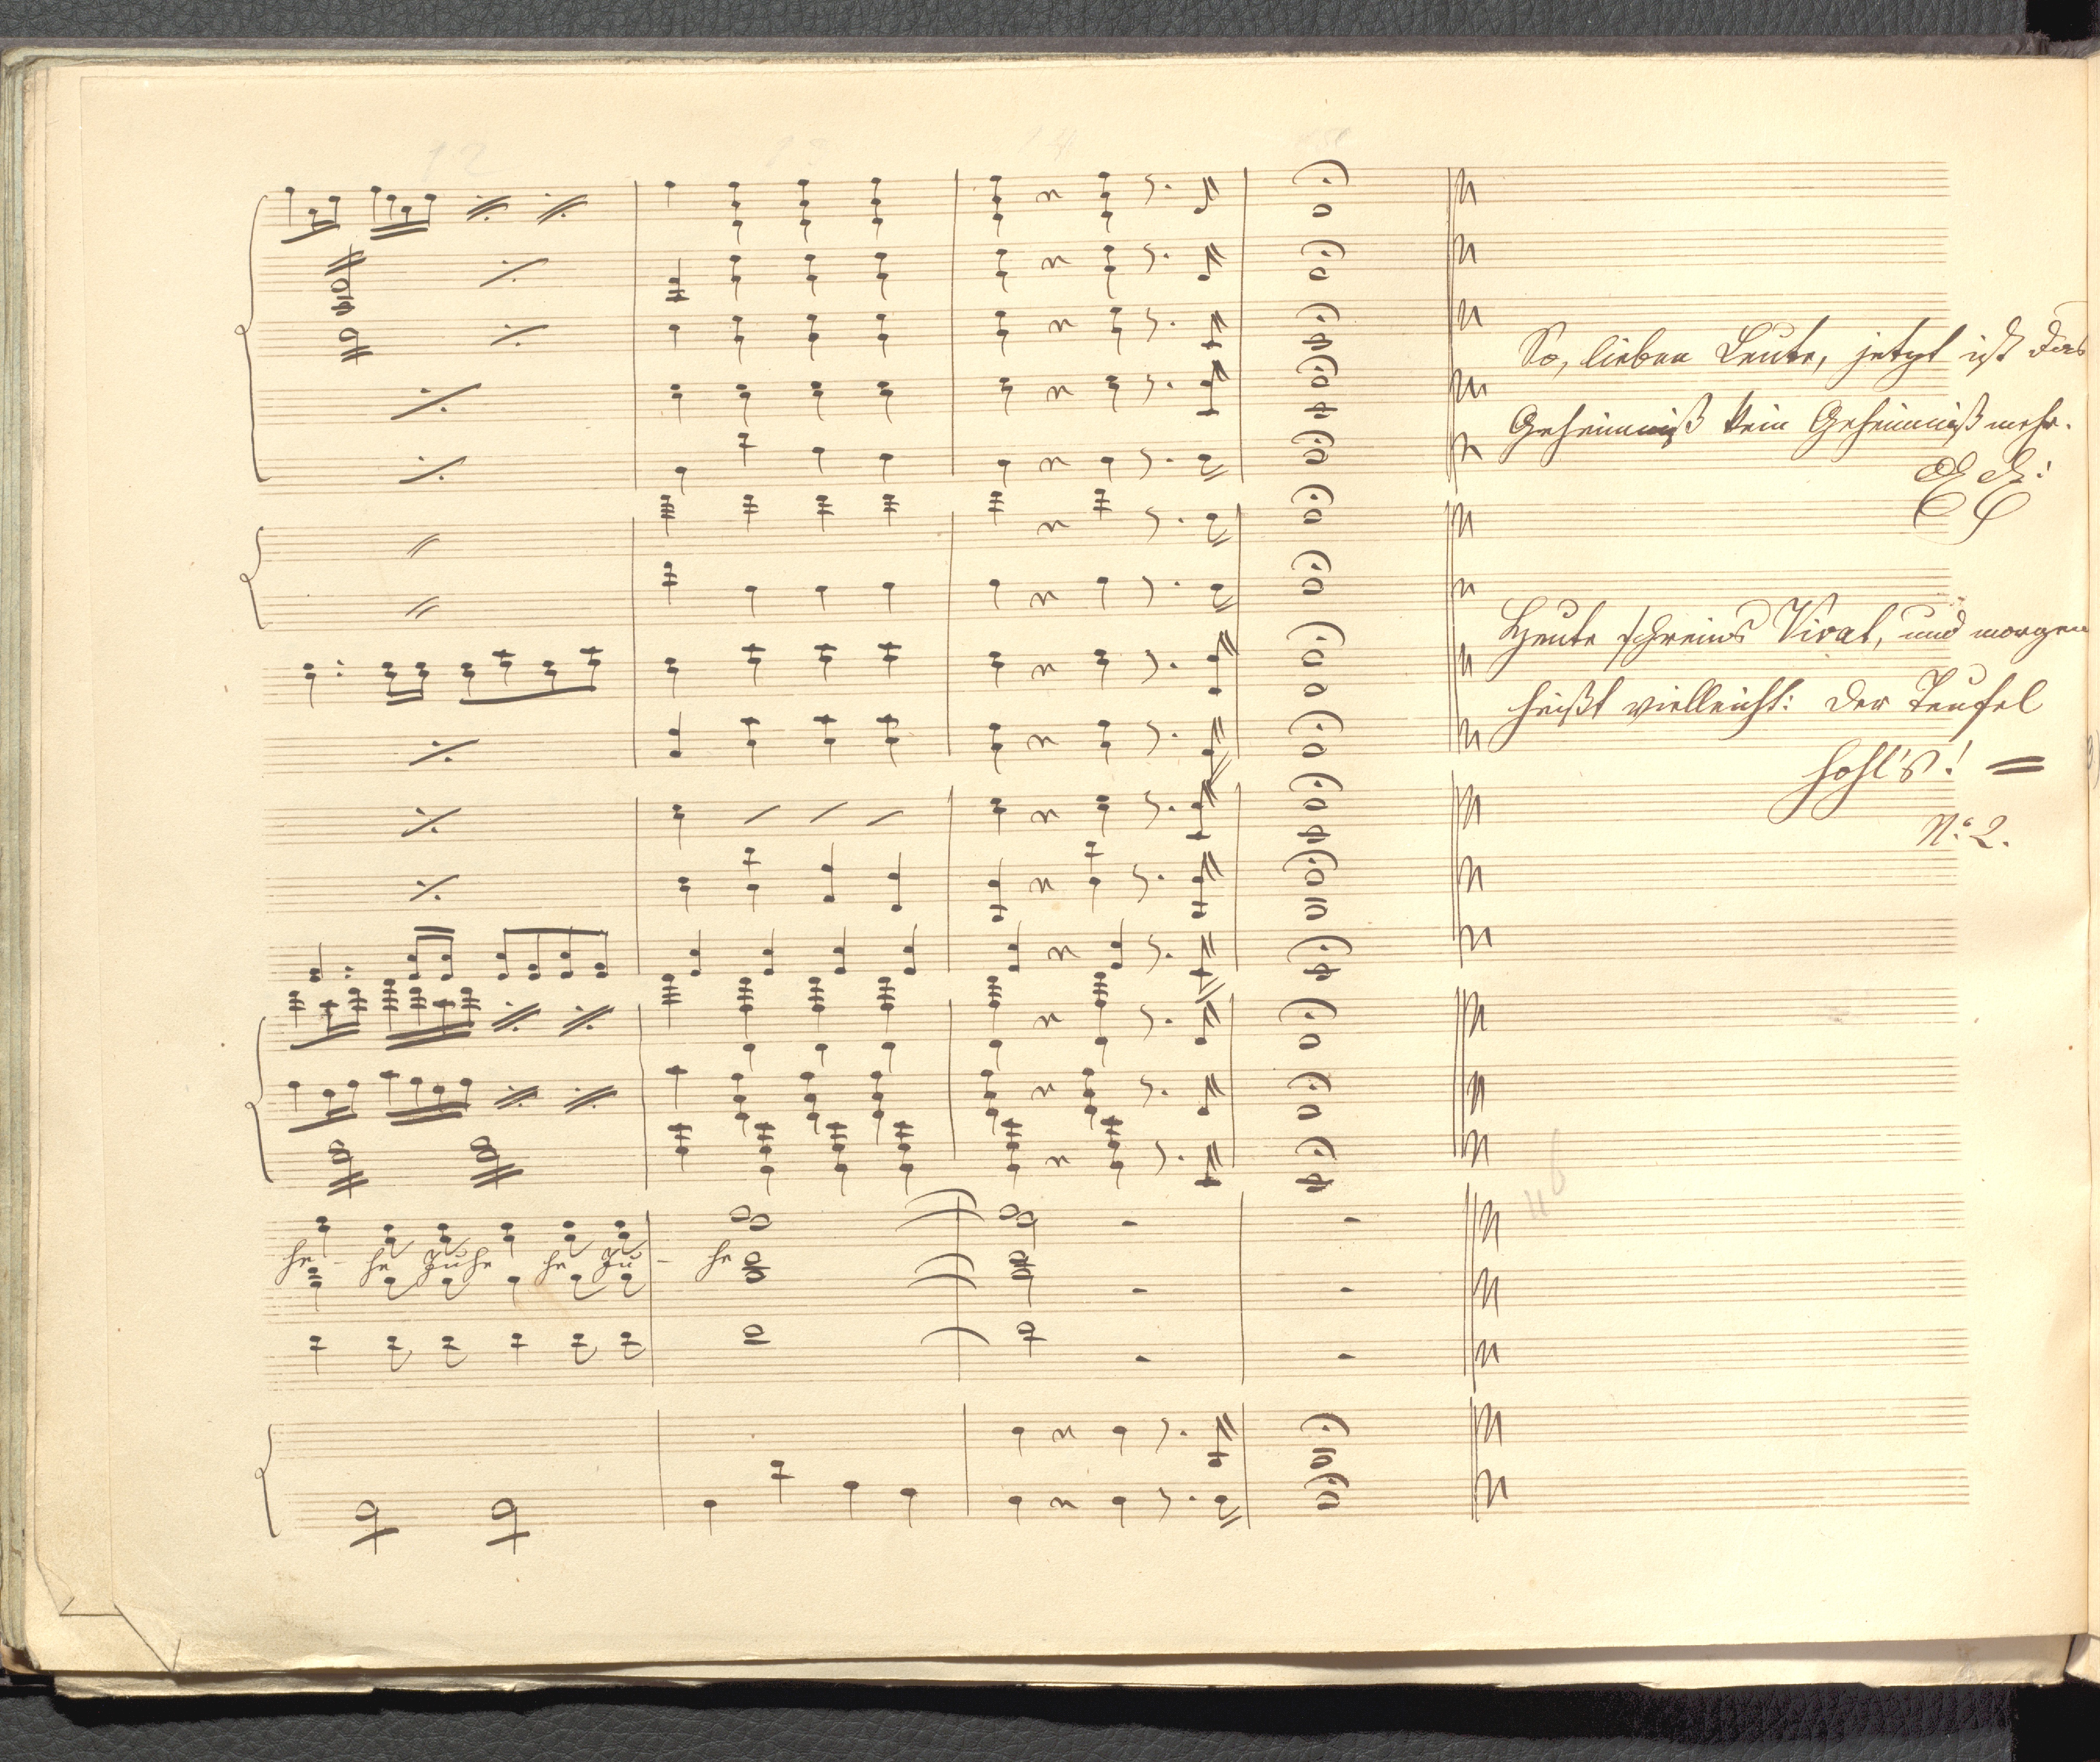 12 13 14
So, lieben Leute, jetzt ist das
Geheimniß kein Geheimniß mehr.
Heute schreins Vivat, und morgen
heißt vielleicht: der Teufel
hohl's! =
N:o 2.
he - he Ju he he Ju - he